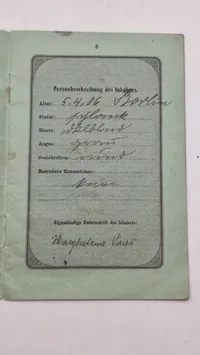 Personbeschreibung des Inhabers.
Alter: 5.4.06 Berlin
Statur: schlank
Haare: dklblond
Augen: grau
Gesichtsform: rund
Besondere Kennzeichen:
keine
Eigenhändige Unterschrift des Inhabers: